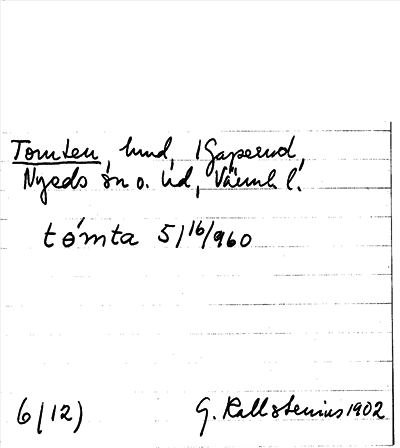 Tomten, hmd, 1 Gaperud,
Nyeds sn o. hd, Värml. l.
tómta 5/16/960
6(12)
G. Kallstenius 1902